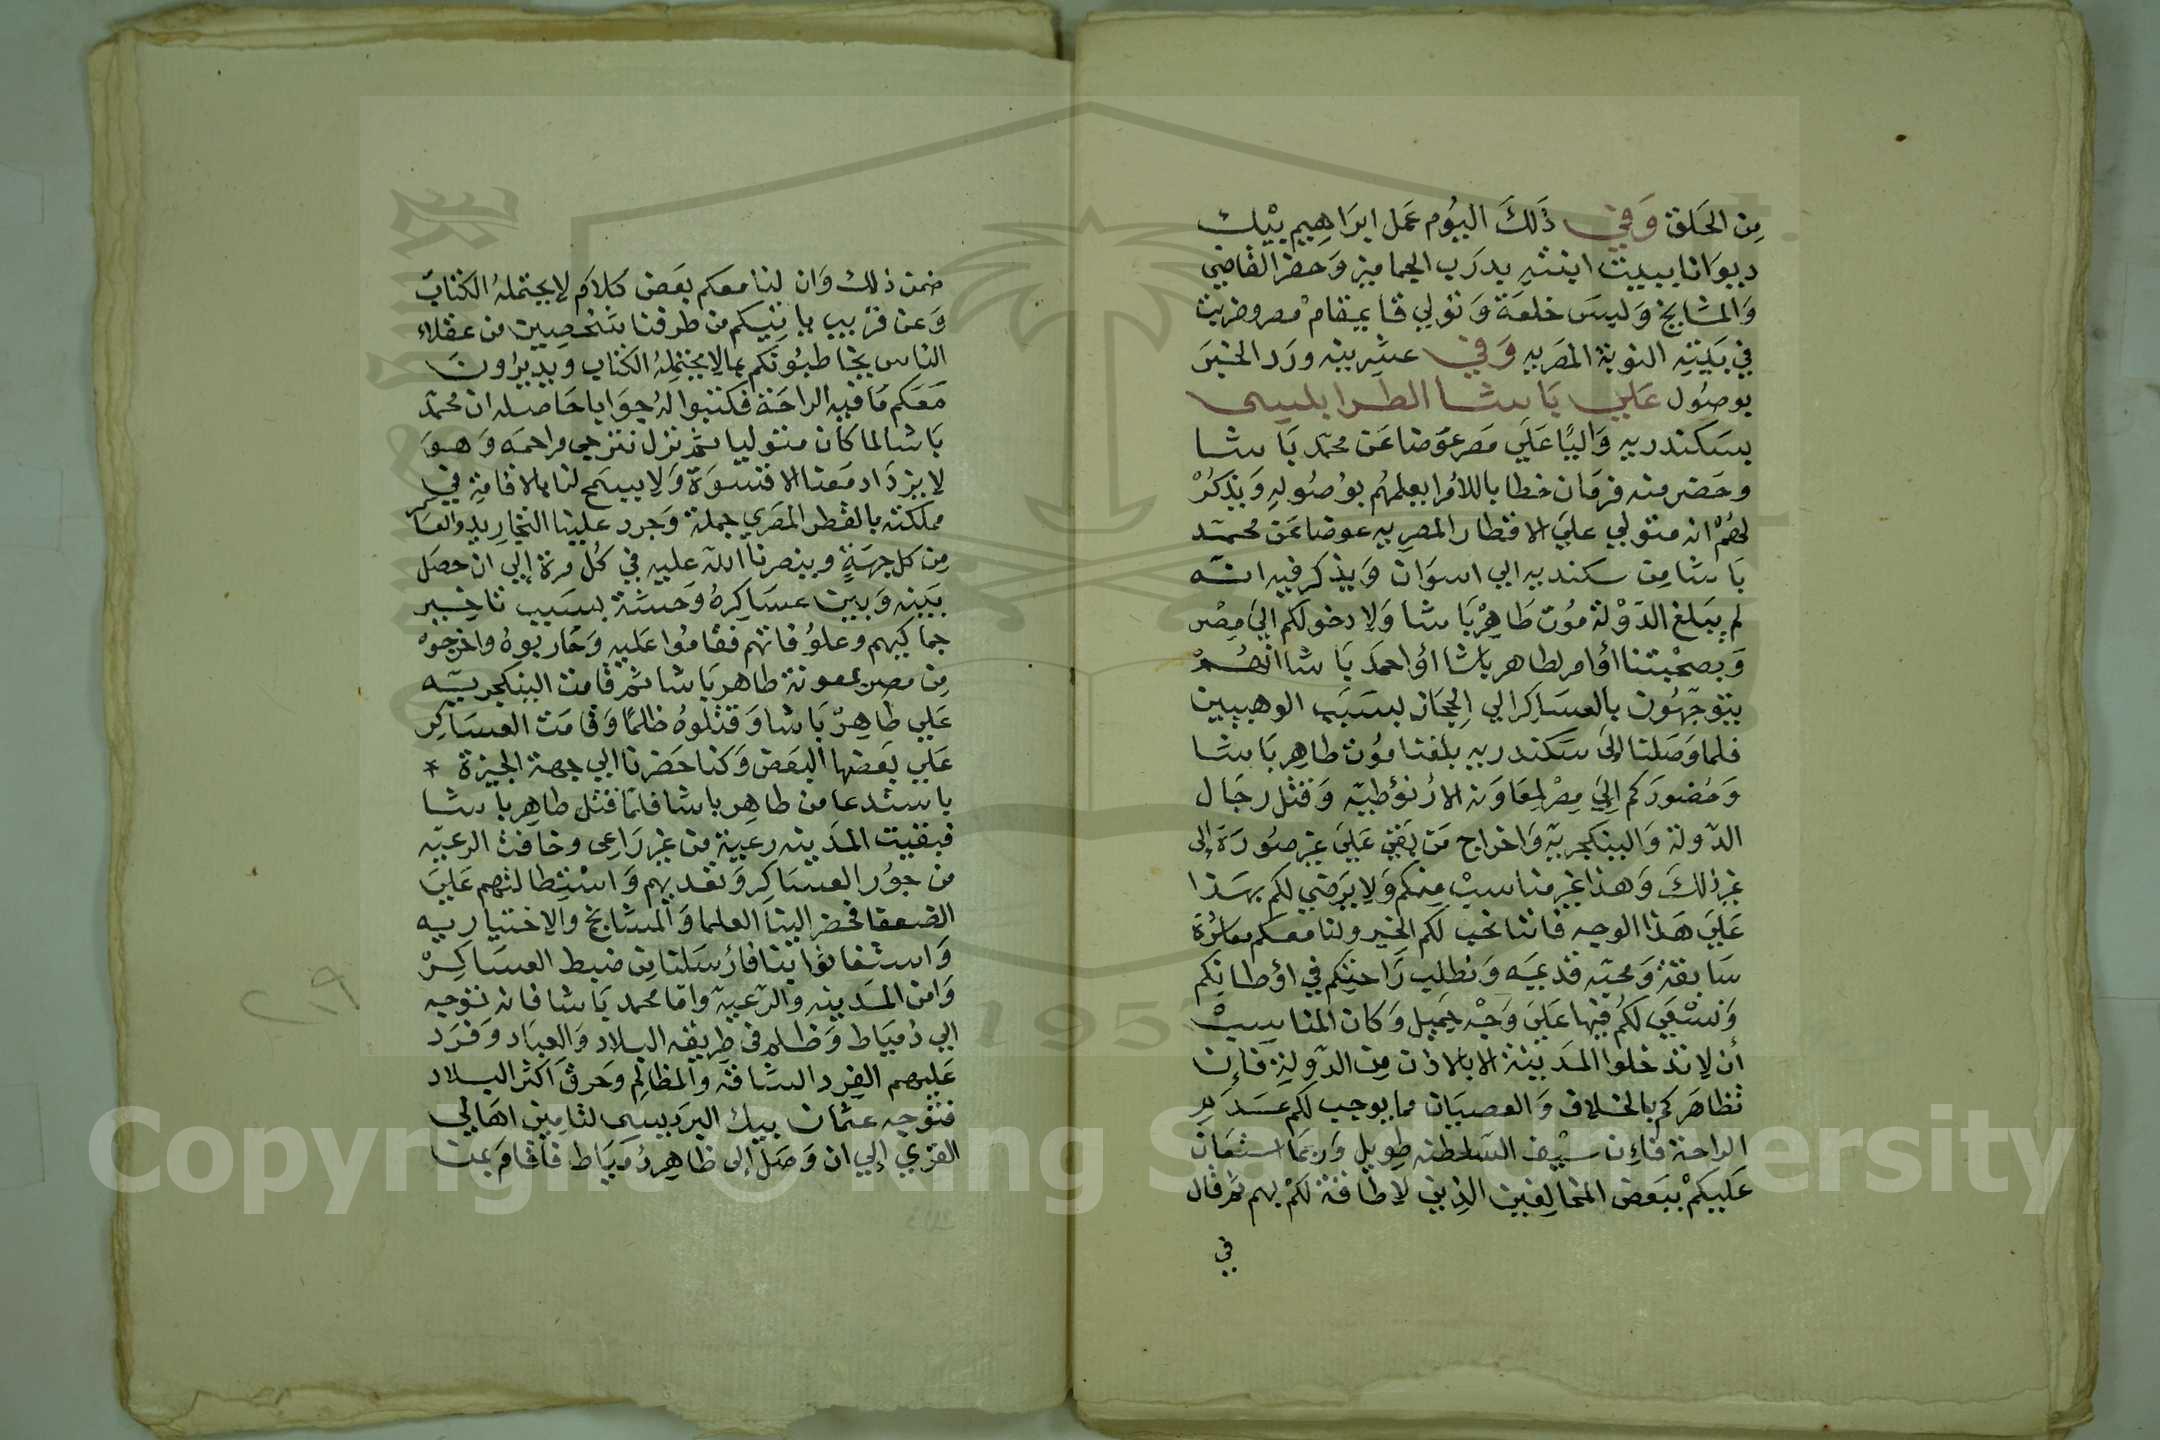 من الخلق وفي ذلك اليوم عمل ابراهيم بيك
ديوانا ببيت ابنته بدرب الجماميز وحضر القاضي
والمشايخ ولبس خلعة وتولي قايمقام مصر وضربت
في بيته النوبة المصريه وفي عشرينه ورد الخبر
بوصول علي باشا الطرابلسي
بسكندريه واليا علي مصر عوضا عن محمد باشا
وحضر منه فرمان خطابا للامرا يعلمهم بوصوله ويذكر
لهم انه متولي علي الاقطار المصريه عوضا عن محمد
باشا من سكندريه الي اسوان ويذكر فيه انه
لم يبلغ الدولة موت طاهر باشا ولا دخولكم الي مصر
وبصحبتنا اوامر لطاهر باشا او احمد باشا انهم
يتوجهون بالعساكر الي الحجاز بسبب الوهبيين
فلما وصلنا الي سكندريه بلغنا موت طاهر باشا
وحضوركم الي مصر لمعاونه الارنؤطيه وقتل رجال
الدولة والينكجريه واخراج من بقي علي غير صورة الي
غير ذلك وهذا غير مناسب منكم ولا يرضي لكم بهذا
علي هذا الوجه فاننا نحب لكم الخير ولنا معكم معاشرة
سابقة ومحبه قديمه ونطلب راحتكم في اوطانكم
ونسعي لكم فيها علي وجه جميل وكان المناسب
أن لا تدخلوا المدينة الا بالاذن من الدولة فإن
تظاهركم بالخلاف والعصيان مما يوجب لكم عدم
الراحة فإن سيف السلطنه طويل وربما استعان
عليكم ببعض المخالفين الذين لا طاقة لكم بهم ثم قال
في
ضمن ذلك وان لنا معكم بعض كلام لا يحتمله الكتاب
وعن قريب ياتيكم من طرفنا شخصين من عقلاء
الناس يخاطبونكم بما لا يحتمله الكتاب ويديرون
معكم ما فيه الراحة فكتبوا له جوابا حاصله ان محمد
باشا لما كان متوليا ثم نزل نترجي مراحمه وهو
لا يزداد معنا الا قسوة ولا يسمح لنا بالاقامة في
مملكته بالقطر المصري جملة وجرد علينا التجاريد والعساكر
من كل جهة وينصرنا الله عليه في كل مرة إلي ان حصل
بينه وبين عساكره وحشة بسبب تاخير
جماكيهم وعلوفاتهم فقاموا عليه وحاربوه واخرجوه
من مصر بمعونة طاهر باشا ثم قامت الينكجريه
علي طاهر باشا وقتلوه ظلما وقامت العساكر
علي بعضها البعض وكنا حضرنا الي جهة الجيزة *
باستدعا من طاهر باشا فلما قتل طاهر باشا
فبقيت المدينه رعية من غير راعي وخافت الرعيه
من جور العساكر وتعديهم واستطالتهم علي
الضعفا فحضر الينا العلما والمشايخ والاختياريه
واستغاثوا بنا فارسلنا من ضبط العساكر
وامن المدينه والرعيه واما محمد باشا فانه توجه
الي دمياط وظلم في طريقه البلاد والعباد وفرد
عليهم الفرد الشاقه والمظالم وحرق اكثر البلاد
فتوجه عثمان بيك البرديسي لتامين اهالي
القري إلي ان وصل إلي ظاهر دمياط فاقام بمن
٢١٩